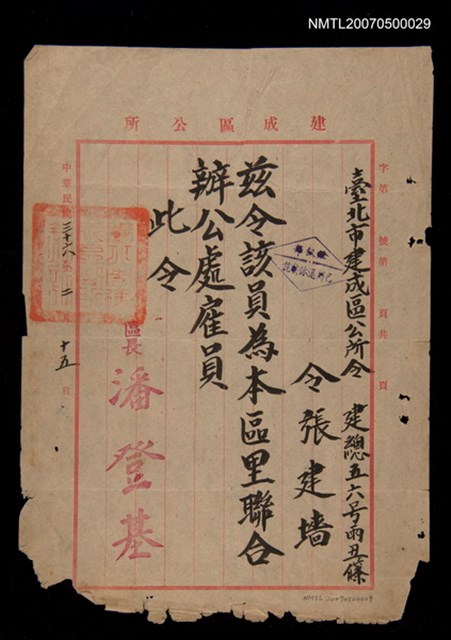 NMTL20070500029
建成區公所
字第 號第 頁共 頁
臺北市建成區公所令 建總五六号雨丑篠
令張建墻
茲令該員為本區里聯合
辦公處雇員
此令
區長 潘登基
中華民國三十六年 二 月 十五 日
NMTL20070500029